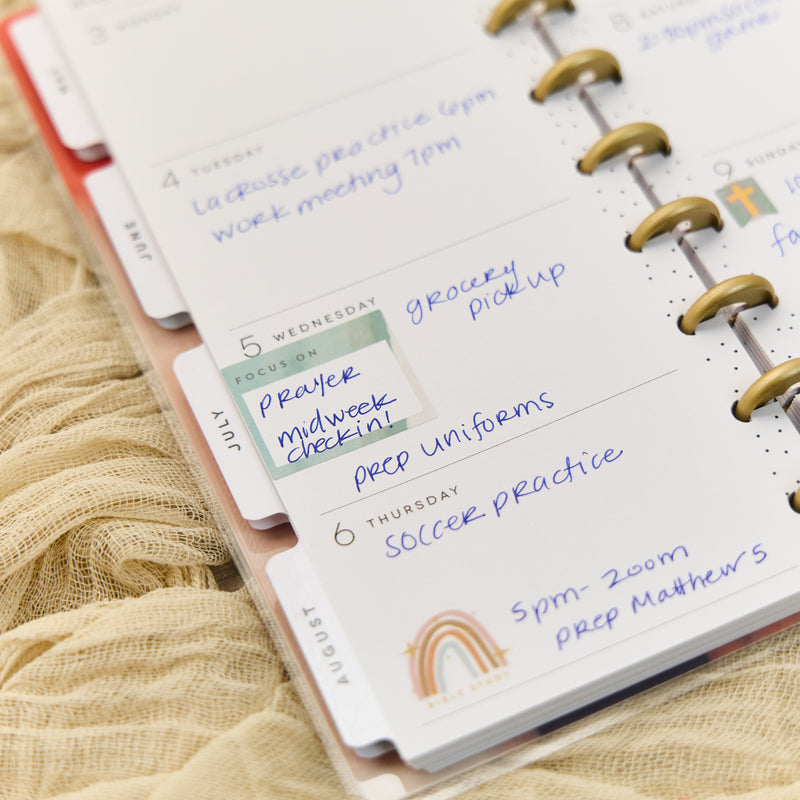 3 MONDAY
4 TUESDAY
lacrosse practice 6pm
work meeting 7pm
5 WEDNESDAY
grocery
pickup
FOCUS ON
prayer
midweek
checkin!
prep uniforms
6 THURSDAY
soccer practice
5pm- zoom
prep Matthew 5
BIBLE STUDY
8 SATURDAY
2:30pm soccer
game
9 SUNDAY
10
fa
MAY
JUNE
JULY
AUGUST